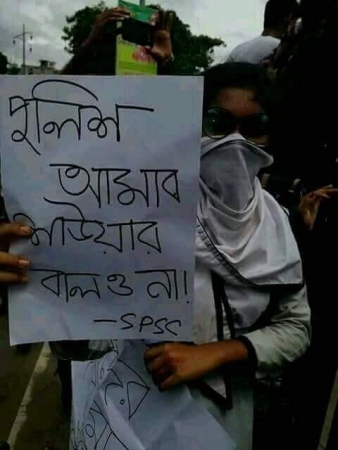 পুলিশ
আমার
শাউয়ার
বালও না!
—SPSC